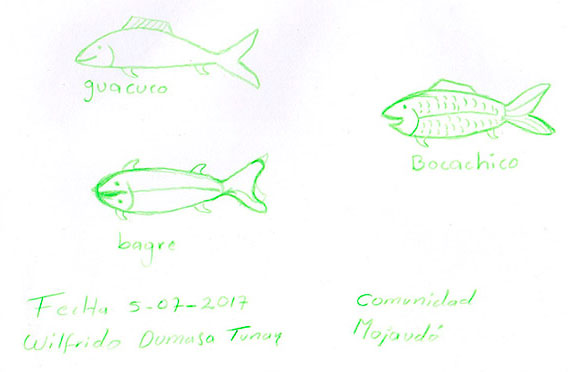 guacuco
Bocachico
bagre
Fecha 5-07-2017
Wilfrido Dumasa
Comunidad
Mojaudó